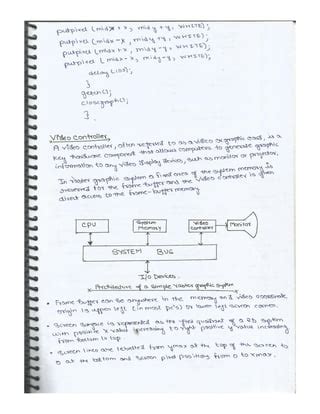 putpixel (midx+x, midy+y, WHITE);
putpixel (midx-x, midy+y, WHITE);
putpixel (midx+x, midy-y, WHITE);
putpixel (midx-x, midy-y, WHITE);
delay(100);
}
getch();
closegraph();
}
Video Controller
A video controller, often referred to as a video or graphic card, is a
key hardware component that allows computers to generate graphic
information to any video display devices, such as monitor or projector.
In raster graphic system a fixed area of the system memory is
reserved for the frame buffer and the video controller is given
direct access to the frame-buffer memory
CPU
System
Memory
Video
Controller
Monitor
SYSTEM BUS
I/O Devices.
Architecture of a simple raster graphic system
• Frame buffer can be anywhere in the memory and video coordinate
origin is upper left (in most pc's) or lower left screen corner.
• Screen surface is represented as the first quadrant of a 2D system
with positive x value increasing to right positive y value increasing
from bottom to top.
• Screen lines are labelled from ymax at the top of the screen to
0 at the bottom and screen pixel positions from 0 to xmax.